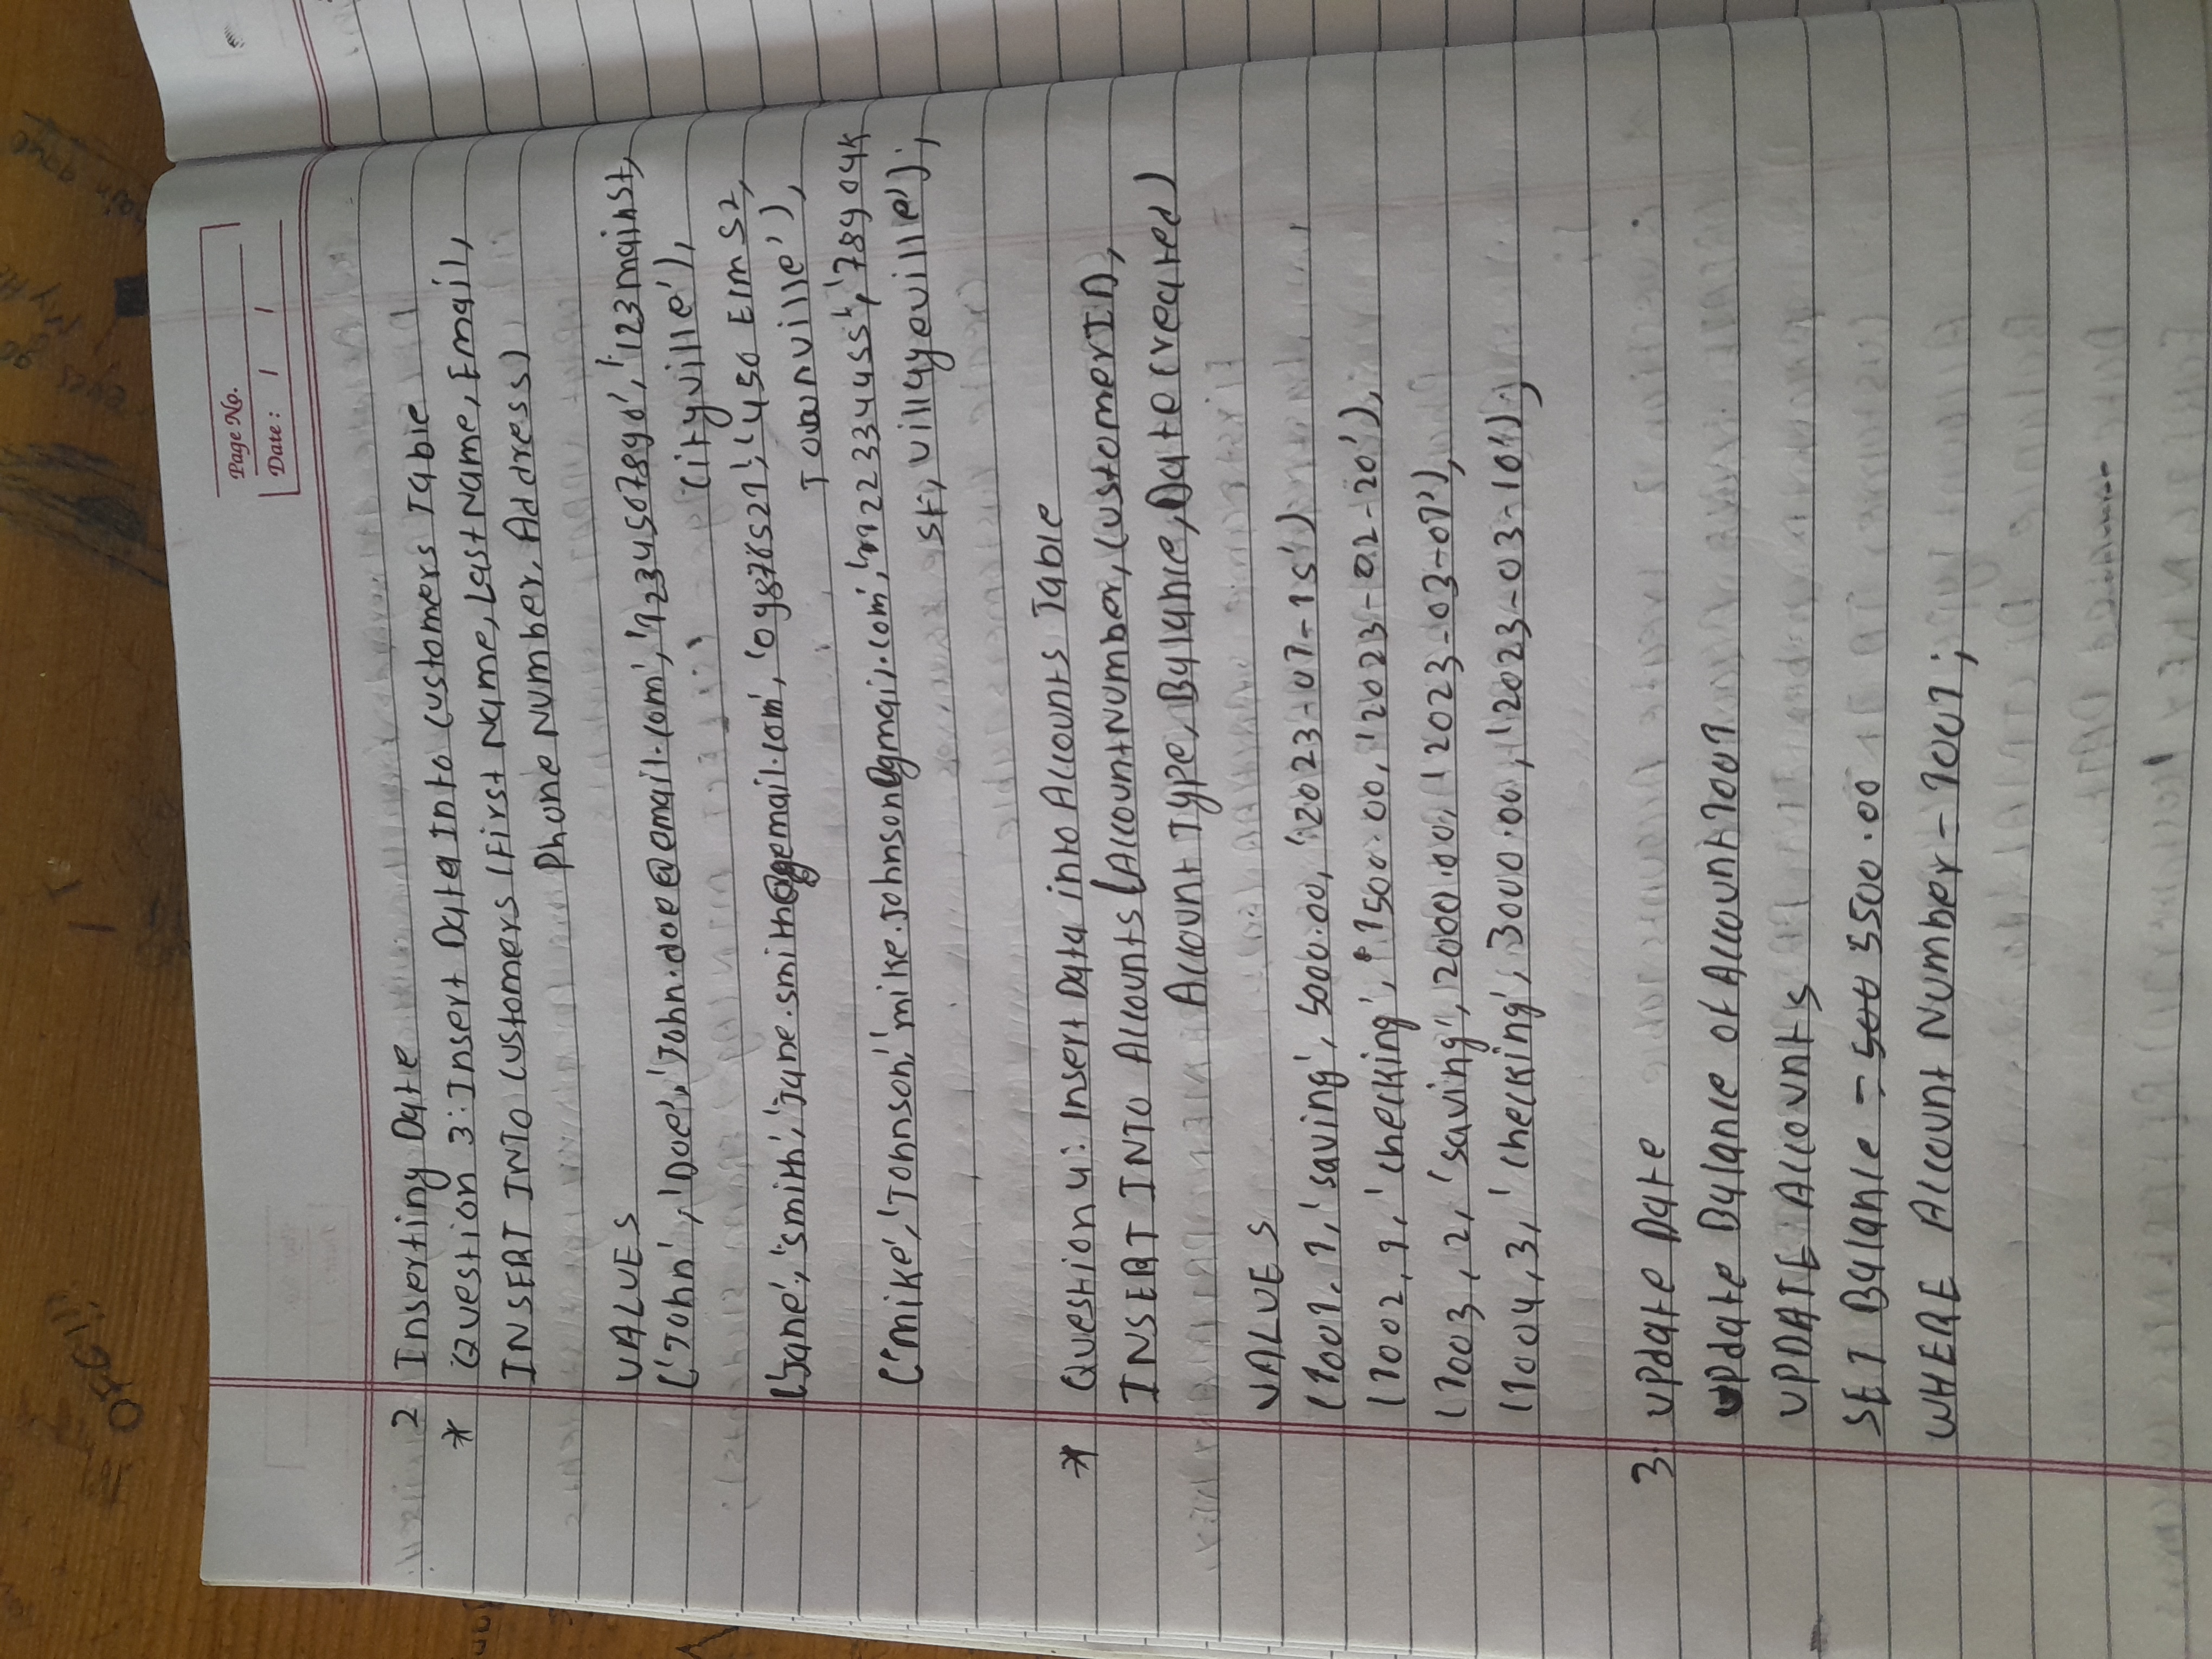 OFC!!!
Page No.
Date : / /
2 Inserting Date
* Question 3: Insert Data Into Customers Table
INSERT INTO Customers (First Name, Last Name, Email,
Phone Number, Address)
VALUES
('John', 'Doe', 'John.doe@email.com', '1234507890', '123 main St,
Cityville'),
('Jane', 'smith', 'Jane.smith@gemail.com', '09876521', '450 Elm S2,
Townville'),
('mike', 'Johnson', 'mike.Johnson@gmail.com', '1122334455', '789 oak
St, Villageville');
* Question 4: Insert Data into Accounts Table
INSERT INTO Accounts (AccountNumber, CustomerID,
Account Type, Balance, Date Created)
VALUES
(1001, 1, 'saving', 5000.00, '2023-01-15')
(1002, 1, 'checking', 1500.00, '2023-02-20'),
(1003, 2, 'saving', 2000.00, '2023-03-01'),
(1004, 3, 'checking', 3000.00, '2023-03-10');
3 Update Date
Update Balance of Account 1001
UPDATE Accounts
SET Balance = 500 5500.00
WHERE Account Number = 1001;